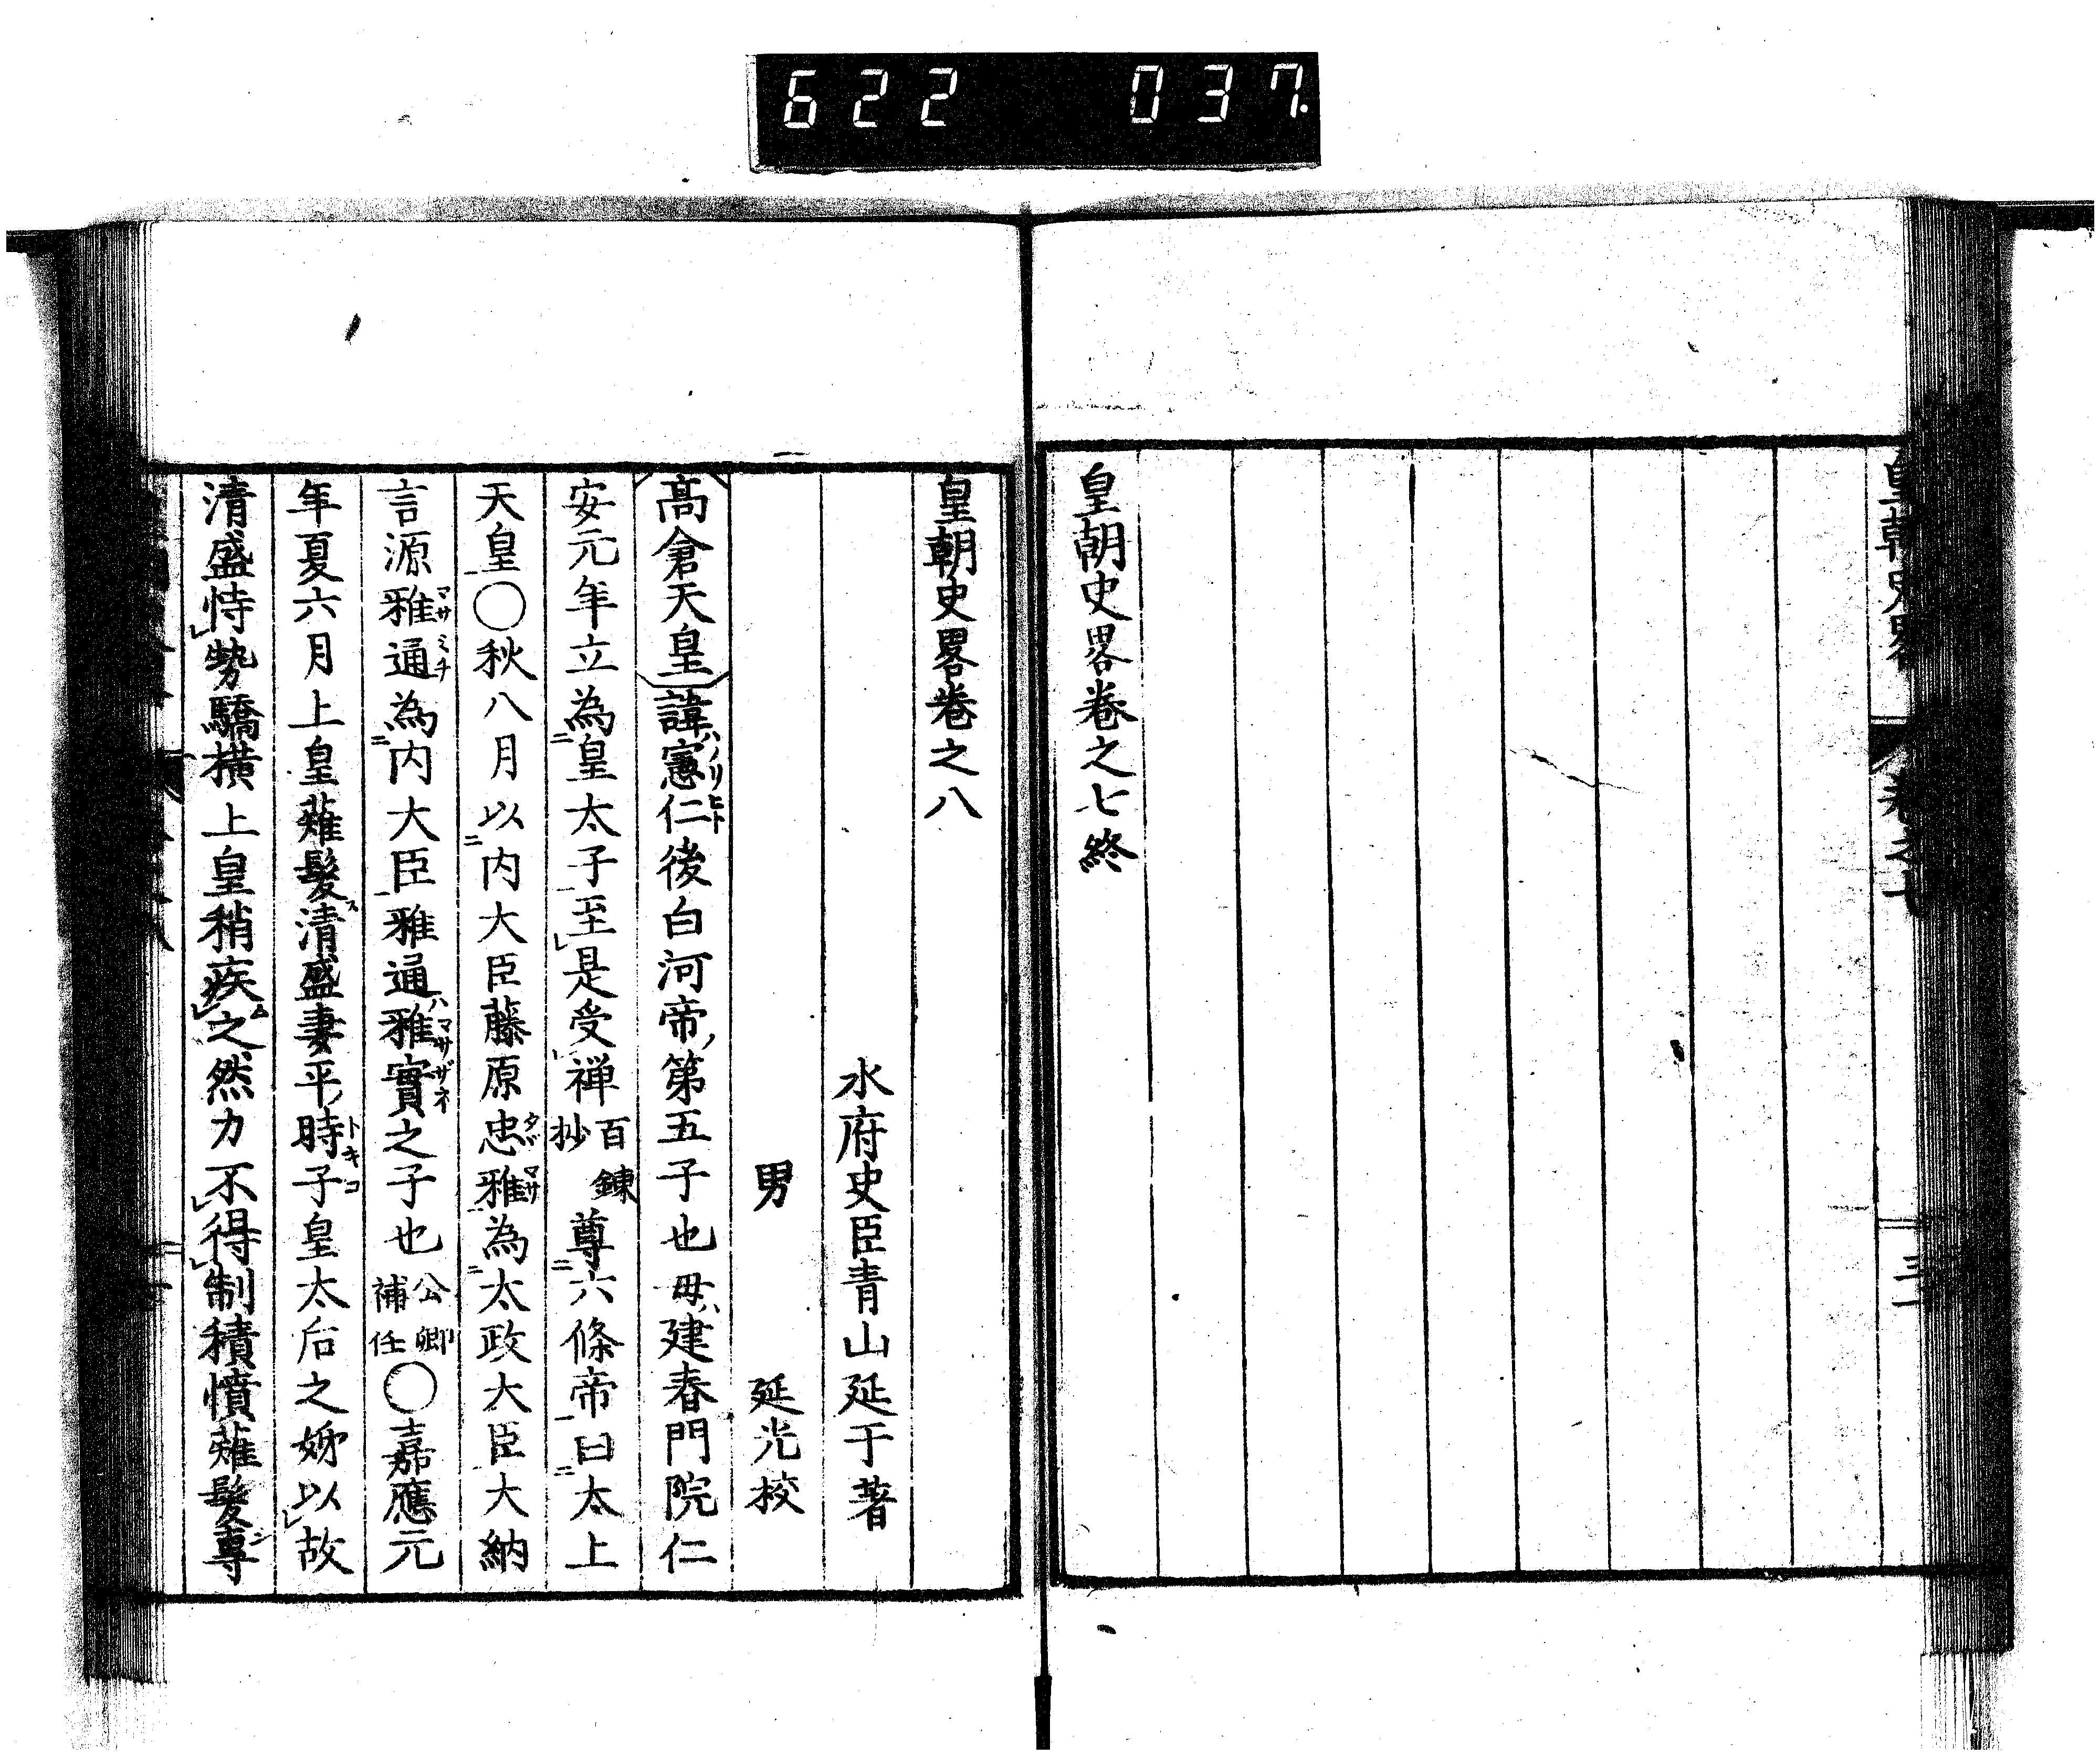 622 037.
皇朝史畧
卷之七
三一
皇朝史畧卷之七終
皇朝史畧卷之八
水府史臣青山延于著
男 延光校
高倉天皇 諱憲仁後白河帝第五子也母建春門院仁
安元年立為皇太子至是受禅百鍊抄尊六條帝曰太上
天皇○秋八月以內大臣藤原忠雅為太政大臣大納
言源雅通為內大臣雅通雅實之子也公卿補任○嘉應元
年夏六月上皇薙髮清盛妻平時子皇太后之姊以故
清盛恃勢驕横上皇稍疾之然力不得制積憤薙髮專